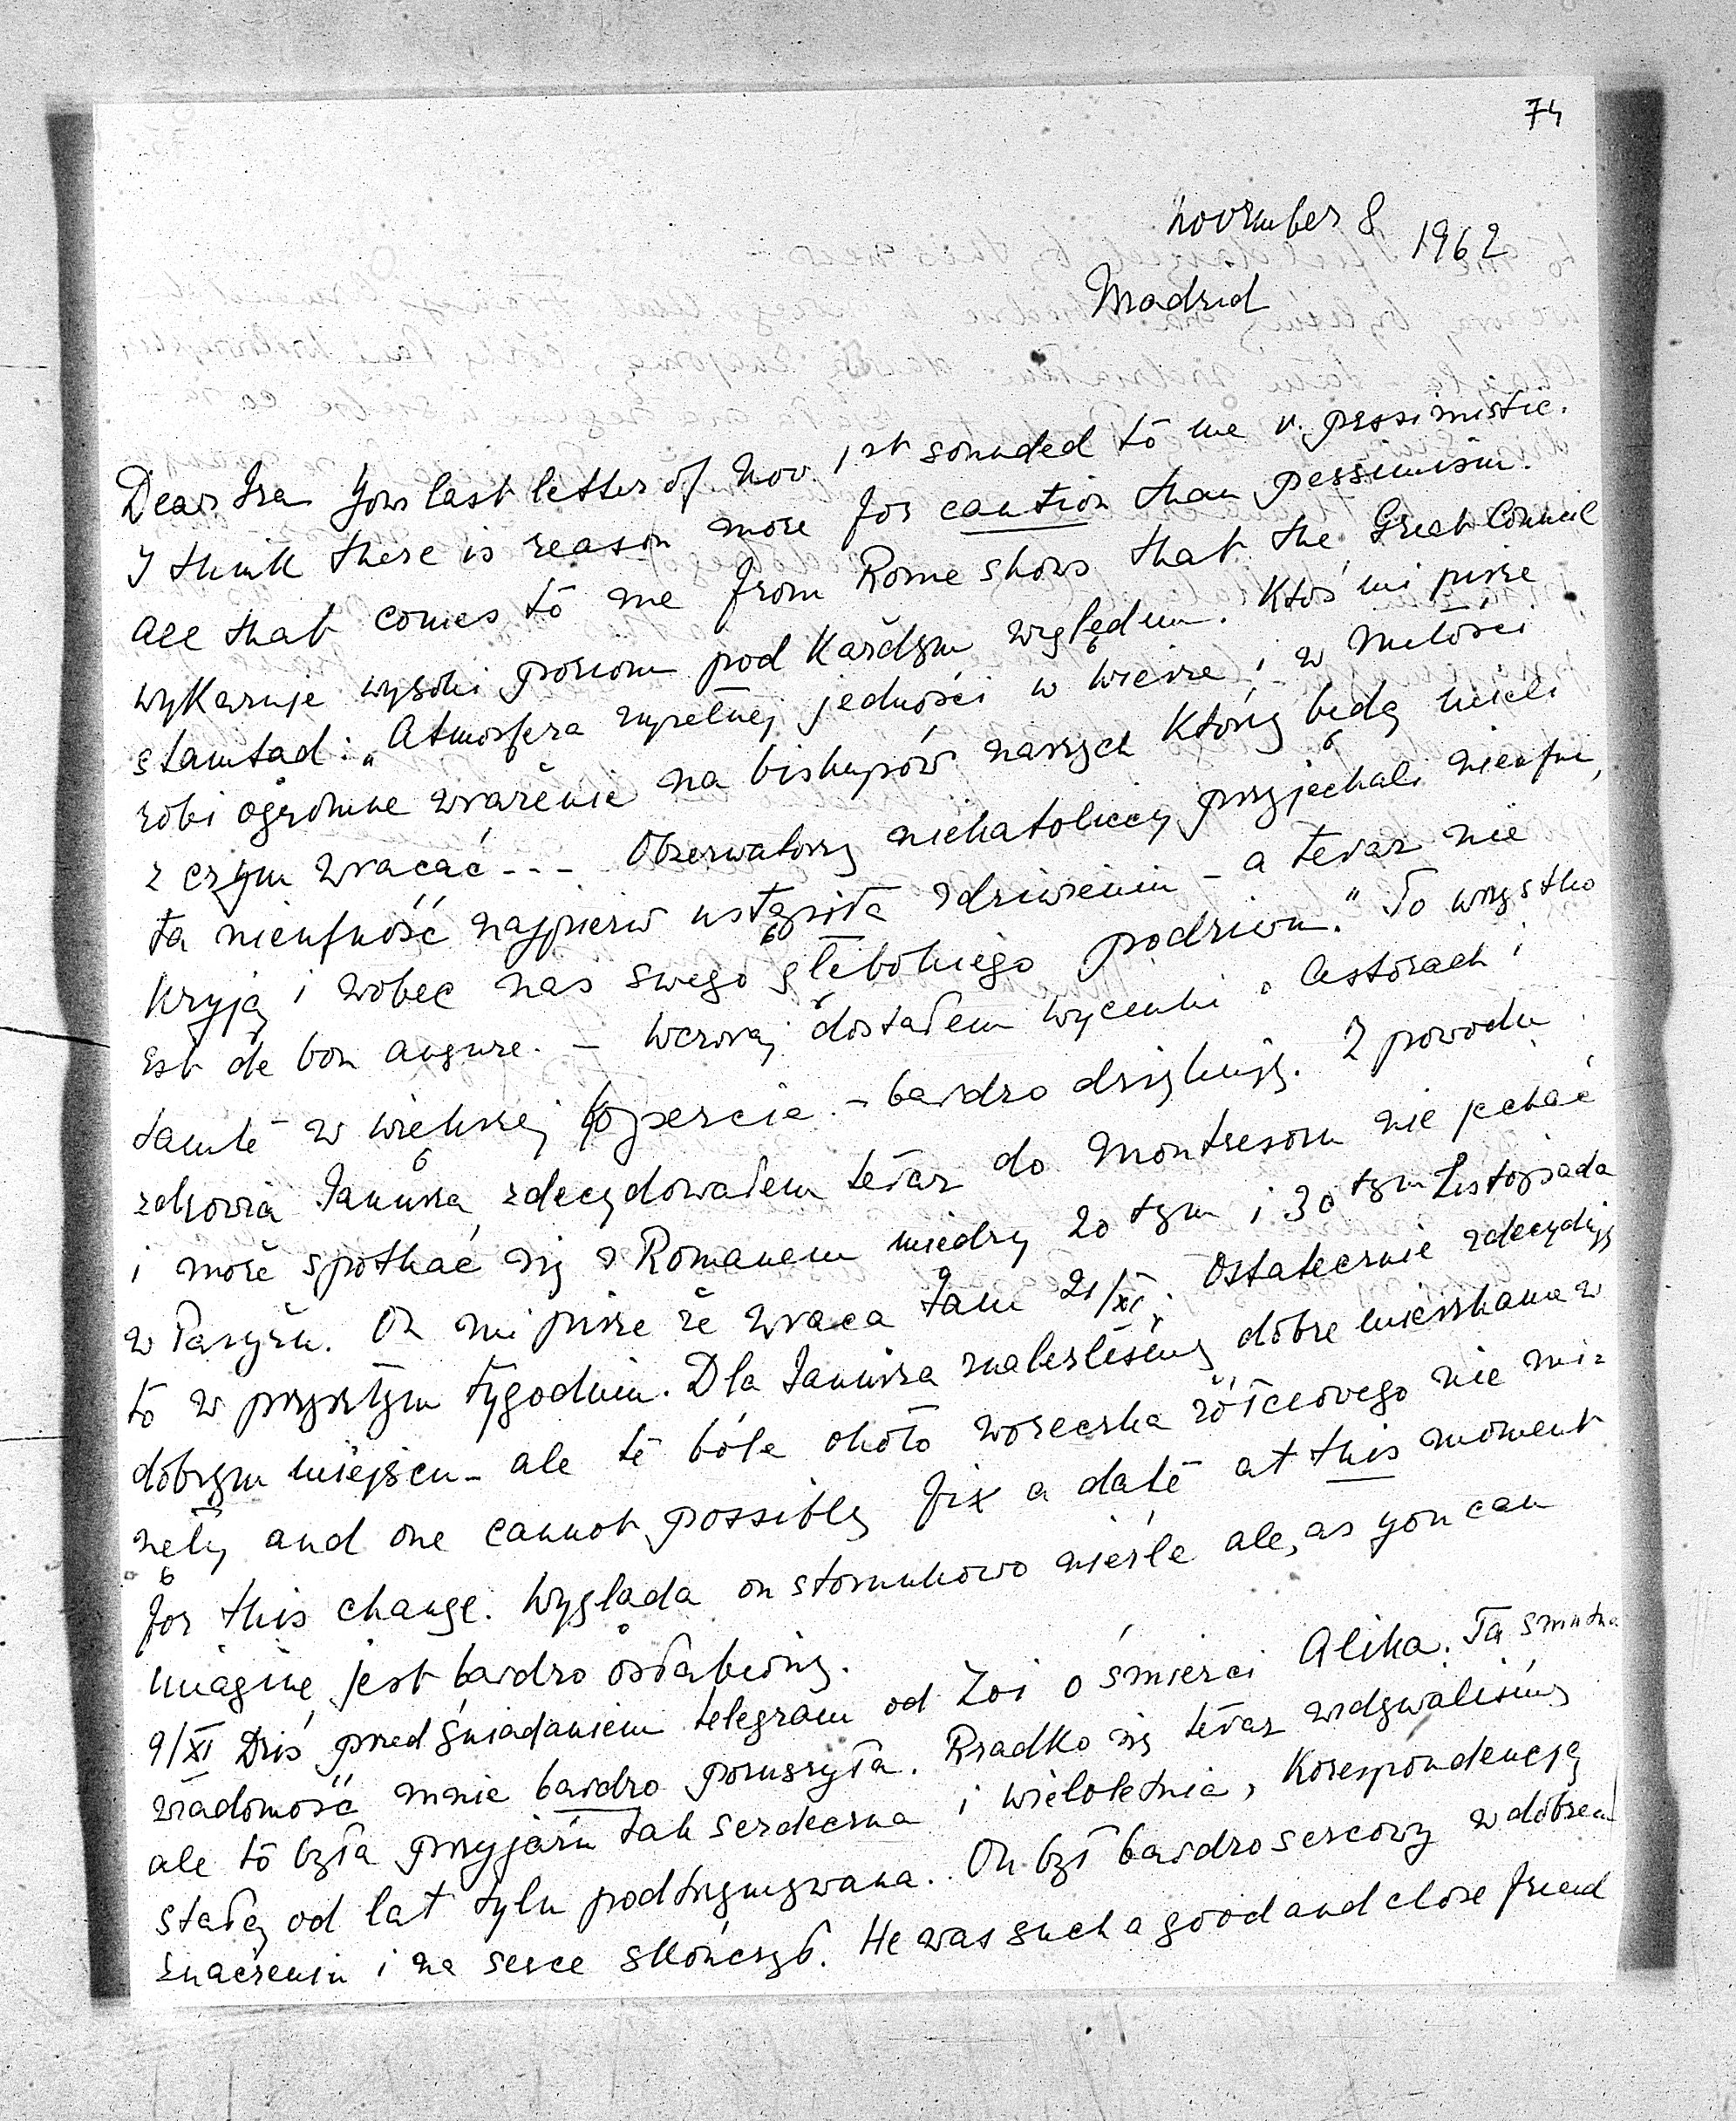 74
november 8 1962
Madrid
Dear Ira Your last letter of Nov. 1st sounded to me v. pessimistic.
I think there is reason more for caution than pessimism.
All that comes to me from Rome shows that the Great Council
wykazuje wysoki poziom pod każdym względem. Ktoś mi pisze
stamtąd: „Atmosfera zupełnej jedności w wierze i w miłości
robi ogromne wrażenie na biskupów naszych którzy będą mieli
z czym wracać --- Obserwatorzy niekatoliccy przyjechali nieufni,
ta nieufność najpierw ustąpiła zdziwieniu - a teraz nie
kryją i wobec nas swego głębokiego podziwu." To wszystko
est de bon augure. - Wczoraj dostałem wycinki o Astorach i
tamte w większej kopercie - bardzo dziękuję. Z powodu
zdrowia Janusza zdecydowałem teraz do Montresoru nie jechać
i może spotkać się z Romanem między 20tym i 30tym Listopada
w Paryżu. On mi pisze że wraca tam 21/XI. Ostatecznie zdecyduję
to w przyszłym tygodniu. Dla Janusza znaleźliśmy dobre mieszkanie w
dobrym miejscu - ale te bóle około woreczka żółciowego nie mi-
nęły and one cannot possibly fix a date at this moment
for this change. Wygląda on stosunkowo nieźle ale, as you can
imagine, jest bardzo osłabiony.
9/XI Dziś przed śniadaniem telegram od Zoi o śmierci Alika. Ta smutna
wiadomość mnie bardzo poruszyła. Rzadko się teraz widywaliśmy
ale to była przyjaźń tak serdeczna i wieloletnia, Korespondencją
stałą od lat tylu podtrzymywana. On był bardzo sercowy w dobrem
znaczeniu i na serce skończył. He was such a good and close friend